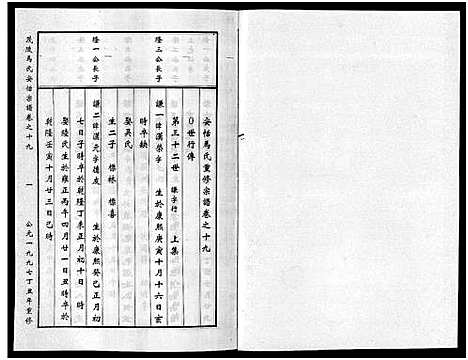 安恬馬氏重修宗譜卷之十九
○世行傳
第三十二世 謙字行 上集
隆三公長子
謙一 諱漢榮字 生於康熙庚寅十月十六日玄
時卒缺
娶吳氏
生二子 懷林 懷喜
隆一公長子
謙二 諱漢元字德友 生於康熙癸巳正月初
七日子時卒於乾隆丁未正月初十日 時
娶陸氏生於雍正丙午四月廿一日丑時卒於
乾隆壬寅十月廿三日巳時
茂陵馬氏安恬宗譜卷之十九 一 公元一九九七丁丑年重修